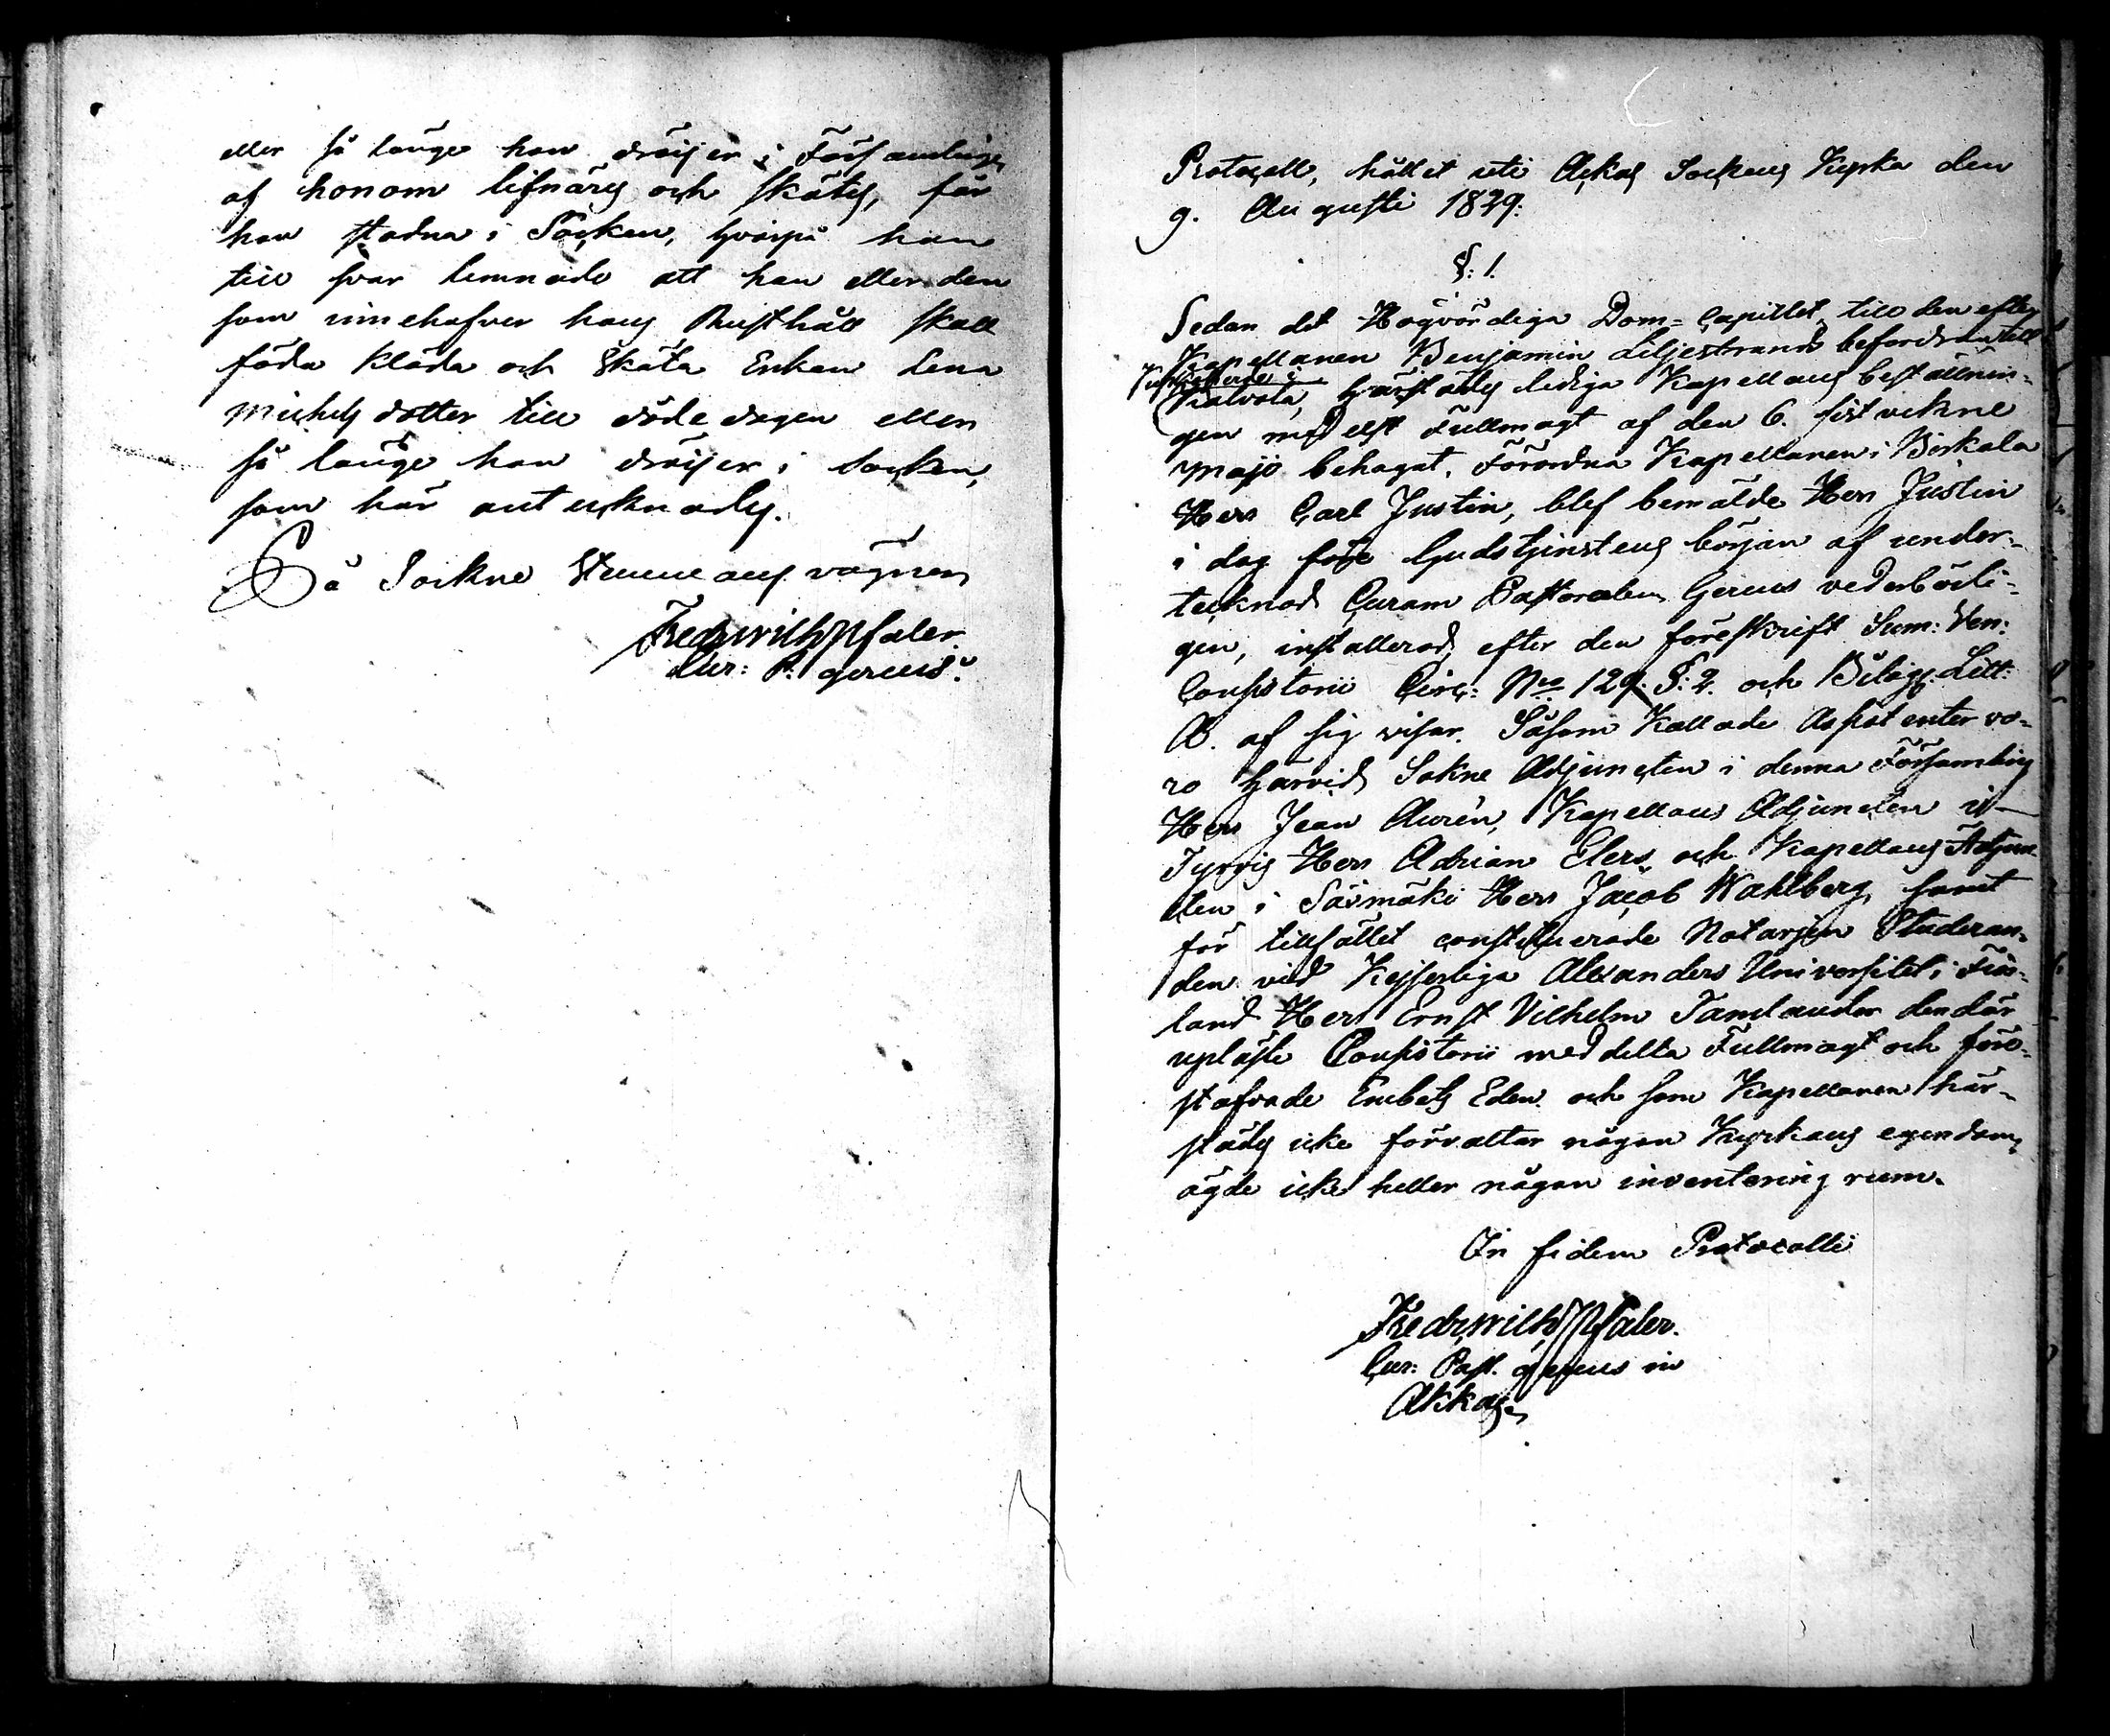 eller så länge hon dröijer i Församlingen
af honom lifnärs och skötes, får
hon stadna i Socken, hvarpå han
till svar lemnade att han eller den
som innehafver hans Rusthåll skall
föda kläda och sköta Enkan Lena
Michels dotter till döde dagen eller
så länge hon dröijer i Socken,
som här antecknades.
På Sockne Stemmans vägnar
Fredr Wilh Ufaler.
Cur: P. gerens.
Protocoll, hållet uti Ackas Sockens Kyrka den
9. Augusti 1829.
§: 1.
Sedan det Högvördiga Dom-Capitlet, till den efter
Kapellanen Benjamin Liljestrand befordran till
Kyrkoherde i
Kalvola, härstädes lediga Kapellans beställnin-
gen medelst Fullmagt af den 6. sist vekne
Maji behagat, Förordna Kapellanen i Birkala
Herr Carl Justin, blef bemälde Herr Justin
i dag före Gudstjenstens början af under-
tecknad Curam Pastoralem Gerens vederbörli-
gen, installerad, efter den föreskrift Sum: Ven:
Consistorii Circ: No 129. §: 2. och Bilaga Litt:
B. af sig visar. Såsom Kallade Assistenter vo-
ro härvid Sokne Adjuncten i denna Församling
Herr Jean Aurén, Kapellans Adjuncten i
Tyrvis Herr Adrian Elers och Kapellans Adjunc-
ten i Säxmäki Herr Jacob Wahlberg, samt
för tillfället constituerade Notarien Studeran-
den vid Kejserliga Alexanders Universitet i Fin-
land Herr Ernst Vilhelm Tamlander den där
upläste Consistorii meddelta Fullmagt och före-
stafvade Embets Eden och som Kapellanen här-
städes icke förvaltar någon Kyrkans egendom,
ägde icke heller någon inventering rum.
In fidem Protocolli
Fredr Wilh Ufaler.
Cur: Past. gerens in
Akkas